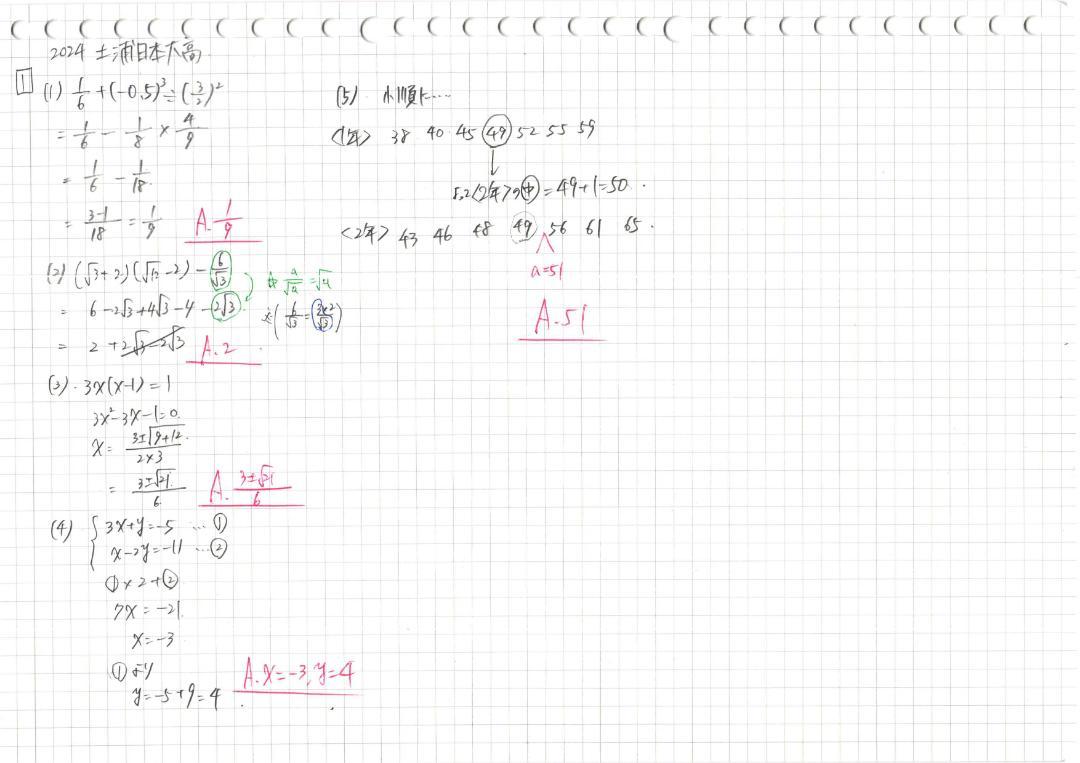 2024 土浦日本大高
1
(1) 1/6 + (-0.5)³ ÷ (3/2)²
= 1/6 - 1/8 × 4/9
= 1/6 - 1/18
= 3-1/18 = 1/9 A. 1/9
(2) (√3+2)(√12-2) - 6/√3
= 6-2√3+4√3-4-2√3
a/√a = √a
(6/√3 = 3×2/√3)
= 2+2√3-2√3 A. 2
(3) 3x(x-1)=1
3x²-3x-1=0
x = 3±√9+12 / 2×3
= 3±√21 / 6 A. 3±√21 / 6
(4) { 3x+y=-5 … ①
x-2y=-11 … ②
①×2+②
7x=-21
x=-3
①より
y=-5+9=4 A. x=-3, y=4
(5) 小順に……
<1年> 38 40 45 49 52 55 59
<2年>の中=49+1=50
<2年> 43 46 48 49 56 61 65
a=51
A. 51